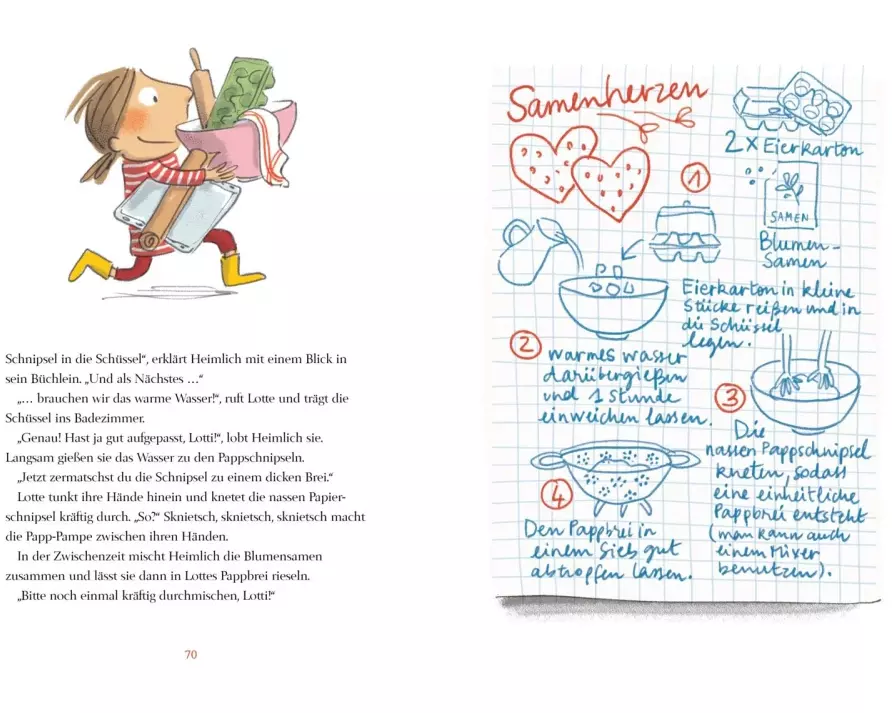 Schnipsel in die Schüssel“, erklärt Heimlich mit einem Blick in
sein Büchlein. „Und als Nächstes …“
„… brauchen wir das warme Wasser!“, ruft Lotte und trägt die
Schüssel ins Badezimmer.
„Genau! Hast ja gut aufgepasst, Lotti!“, lobt Heimlich sie.
Langsam gießen sie das Wasser zu den Pappschnipseln.
„Jetzt zermatschst du die Schnipsel zu einem dicken Brei.“
Lotte tunkt ihre Hände hinein und knetet die nassen Papier-
schnipsel kräftig durch. „So?“ Sknietsch, sknietsch, sknietsch macht
die Papp-Pampe zwischen ihren Händen.
In der Zwischenzeit mischt Heimlich die Blumensamen
zusammen und lässt sie dann in Lottes Pappbrei rieseln.
„Bitte noch einmal kräftig durchmischen, Lotti!“
70
Samenherzen
2 x Eierkarton
SAMEN
Blumen-
Samen
1
Eierkarton in kleine
Stücke reißen und in
die Schüssel
legen.
2
warmes wasser
darübergießen
und 1 Stunde
einweichen lassen.
3
Die
nassen Pappschnipsel
kneten, sodass
eine einheitliche
Pappbrei entsteht
(man kann auch
einem Mixer
benutzen).
4
Den Pappbrei in
einem Sieb gut
abtropfen lassen.